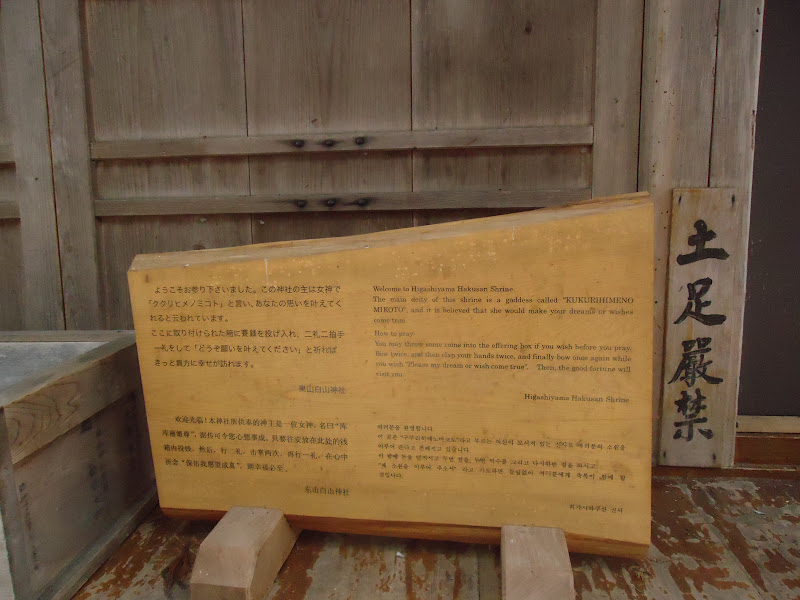 ようこそお参り下さいました。この神社の主は女神で
「ククリヒメノミコト」と言い、あなたの思いを叶えてく
れると云われています。
ここに取り付けられた箱に賽銭を投げ入れ、二礼二拍手
一礼をして「どうぞ願いを叶えてください」と祈れば
きっと貴方に幸せが訪れます。
東山白山神社
Welcome to Higashiyama Hakusan Shrine
The main deity of this shrine is a goddess called "KUKURIHIMENO
MIKOTO", and it is believed that she would make your dreams or wishes
come true.
How to pray:
You may throw some coins into the offering box if you wish before you pray.
Bow twice, and than clap your hands twice, and finally bow once again while
you wish "Please my dream or wish come true". Then, the good fortune will
visit you.
Higashiyama Hakusan Shrine
欢迎光临！本神社所供奉的神主是一位女神，名曰"
据传可令您心想事成。只要往安放在此处的钱
箱内投钱，然后，行二礼、击掌两次、再行一礼，在心中
祈念"保佑我愿望成真"，则幸福必至。
东山白山神社
여러분을 환영합니다
이루어 준다고 전해지고 있습니다
히가시야마 신사
土足厳禁